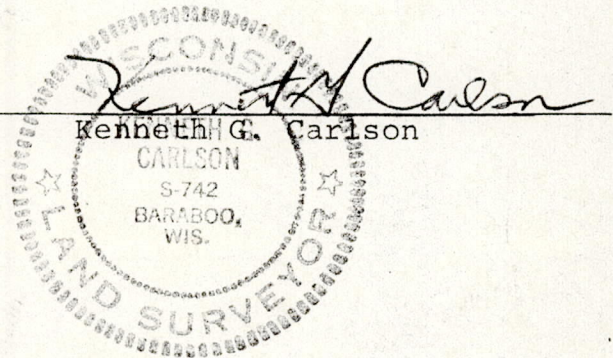 Kenneth G Carlson
Kenneth G. Carlson
WISCONSIN
KENNETH G.
CARLSON
S-742
BARABOO,
WIS.
LAND SURVEYOR